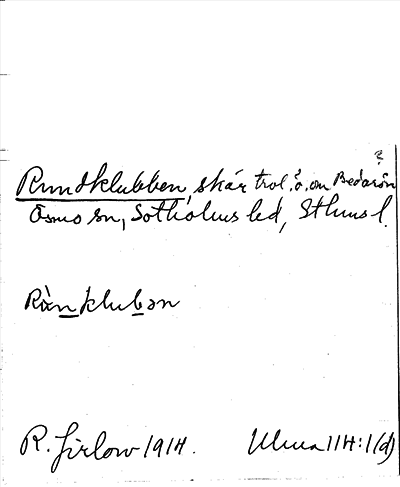 ?
Rundklubben, skär trol. ö. om Bedarön
Ösmo sn, Sotholms hd, Sthms l.
Ränklubən
R. Jirlow 1914. Ulma 114:1(d)